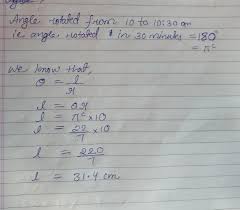 Angle rotated from 10 to 10:30 am
ie angle rotated in 30 minutes = 180°
= πᶜ
We know that,
θ = l/r
l = θr
l = πᶜ × 10
l = 22/7 × 10
l = 220/7
l = 31.4 cm